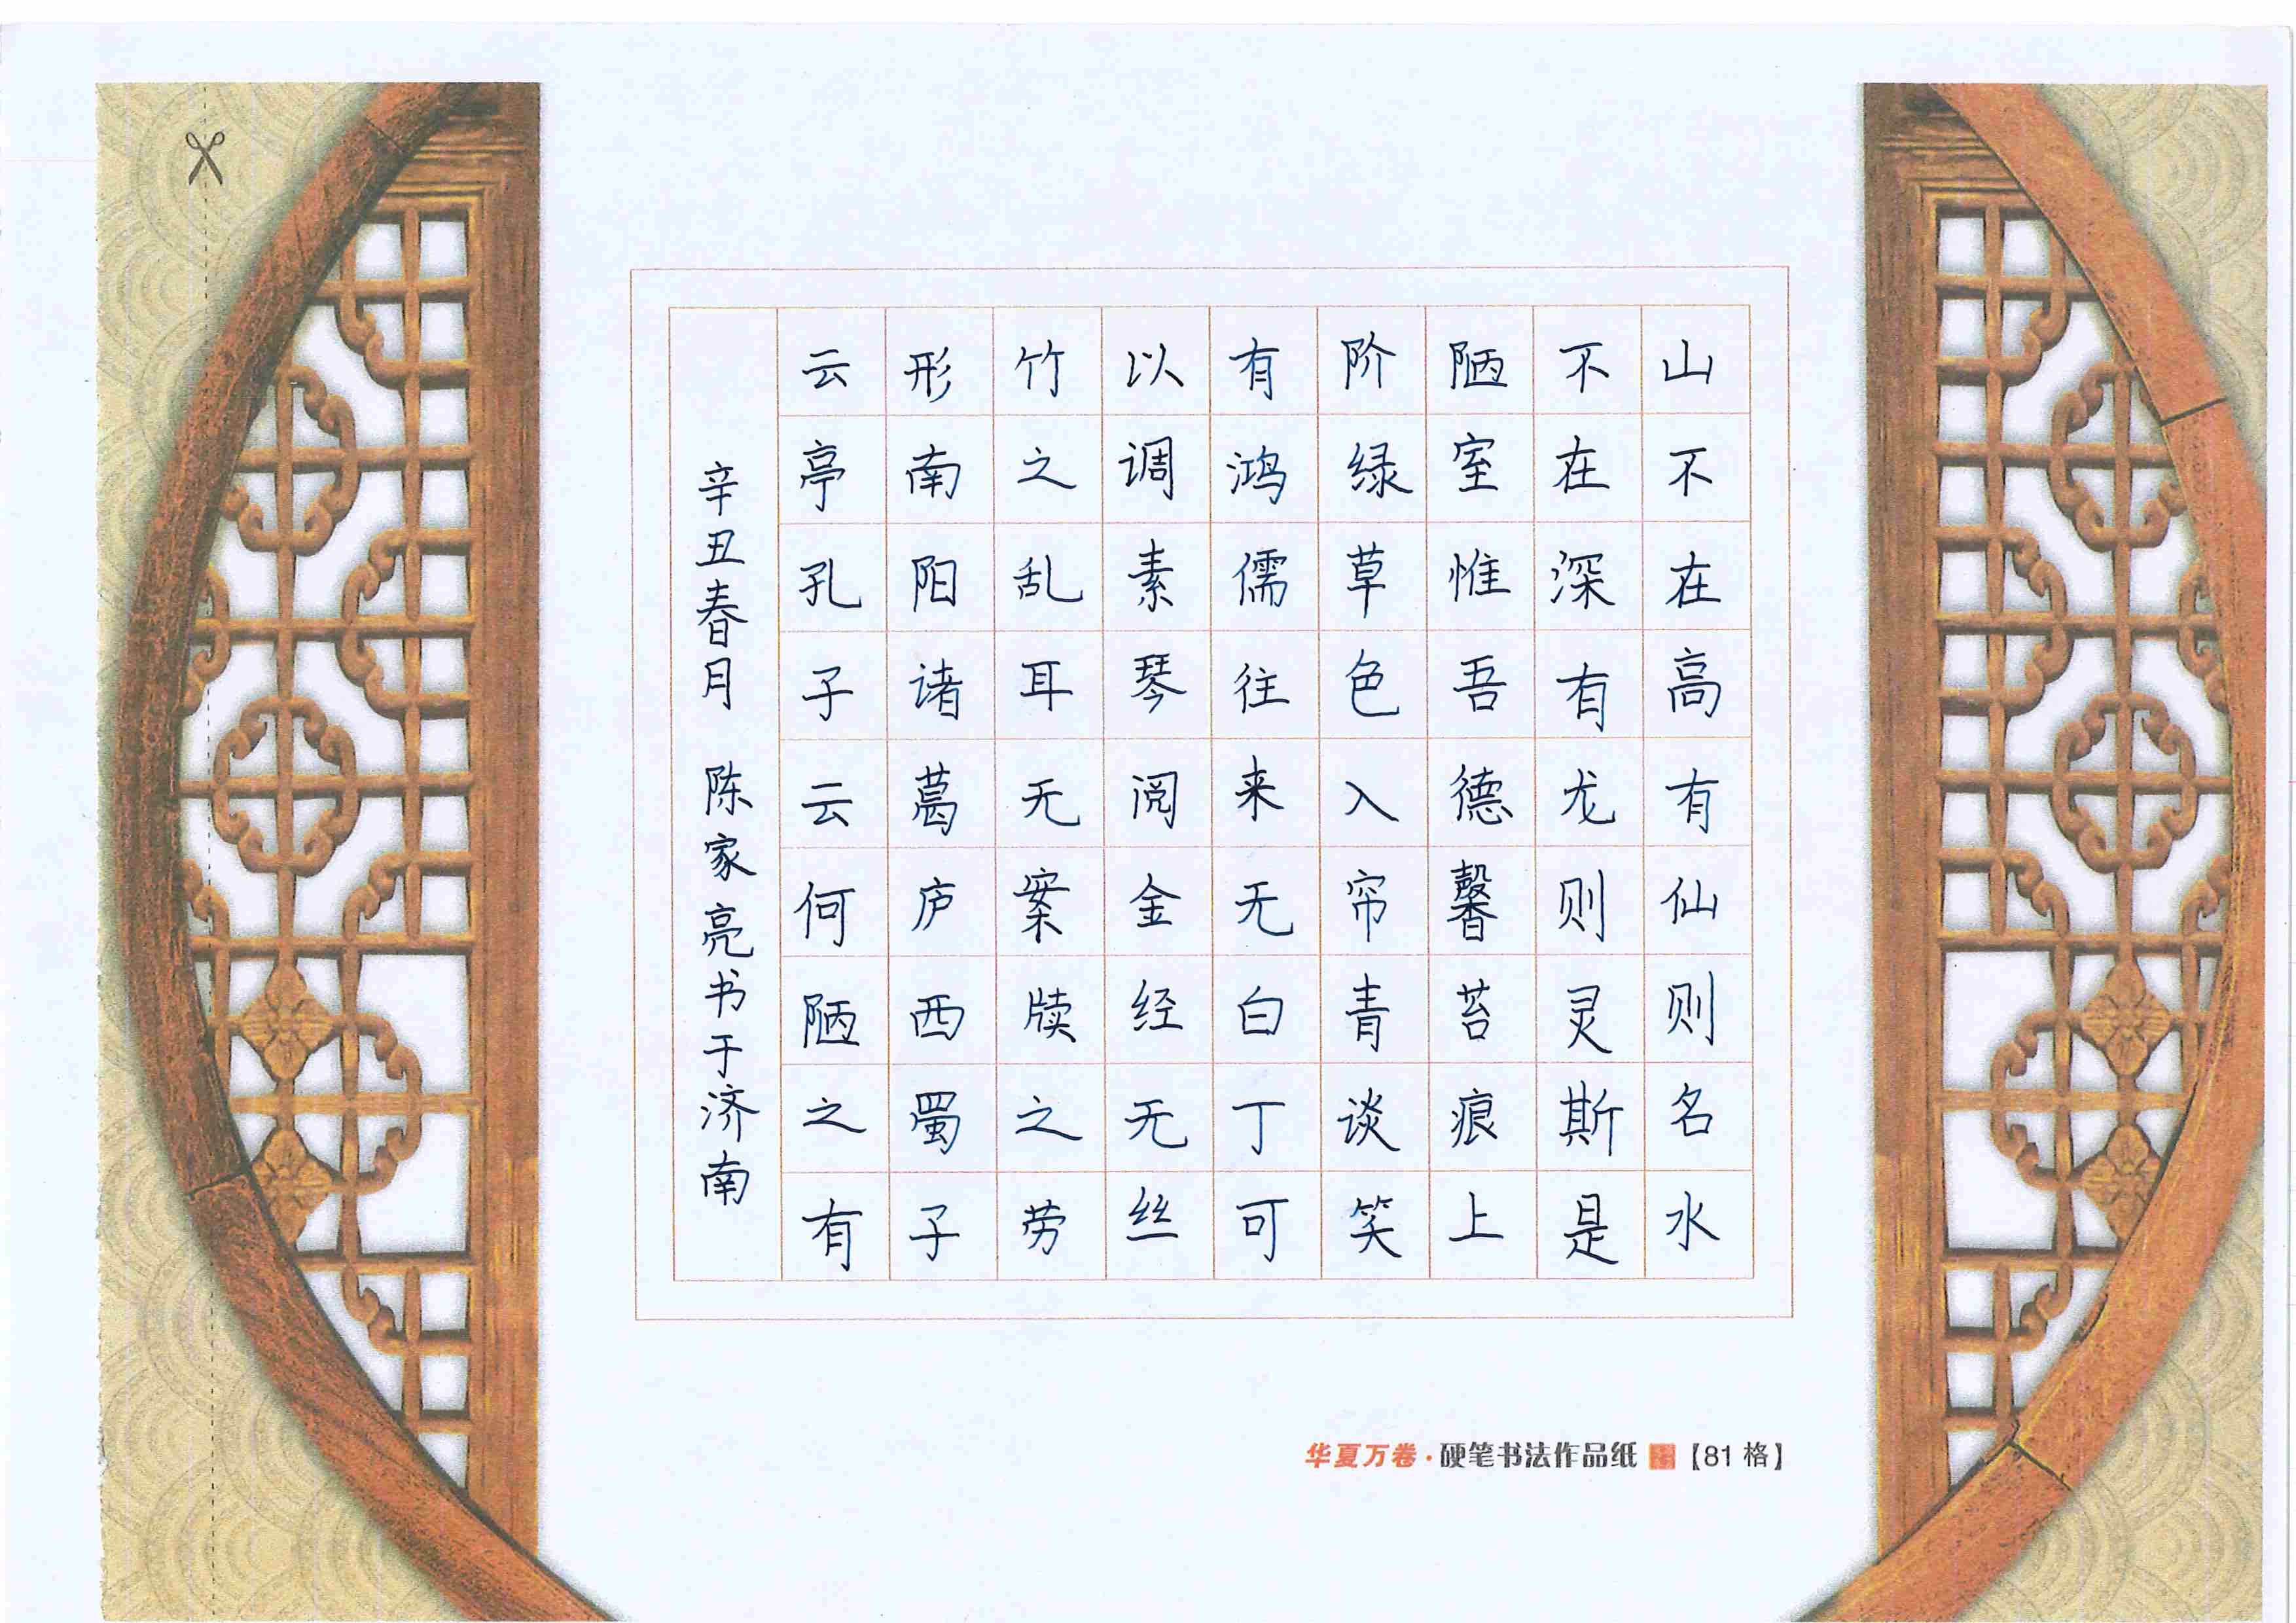 山不在高有仙则名水
不在深有龙则灵斯是
陋室惟吾德馨苔痕上
阶绿草色入帘青谈笑
有鸿儒往来无白丁可
以调素琴阅金经无丝
竹之乱耳无案牍之劳
形南阳诸葛庐西蜀子
云亭孔子云何陋之有
辛丑春月 陈家亮书于济南
华夏万卷·硬笔书法作品纸【81格】